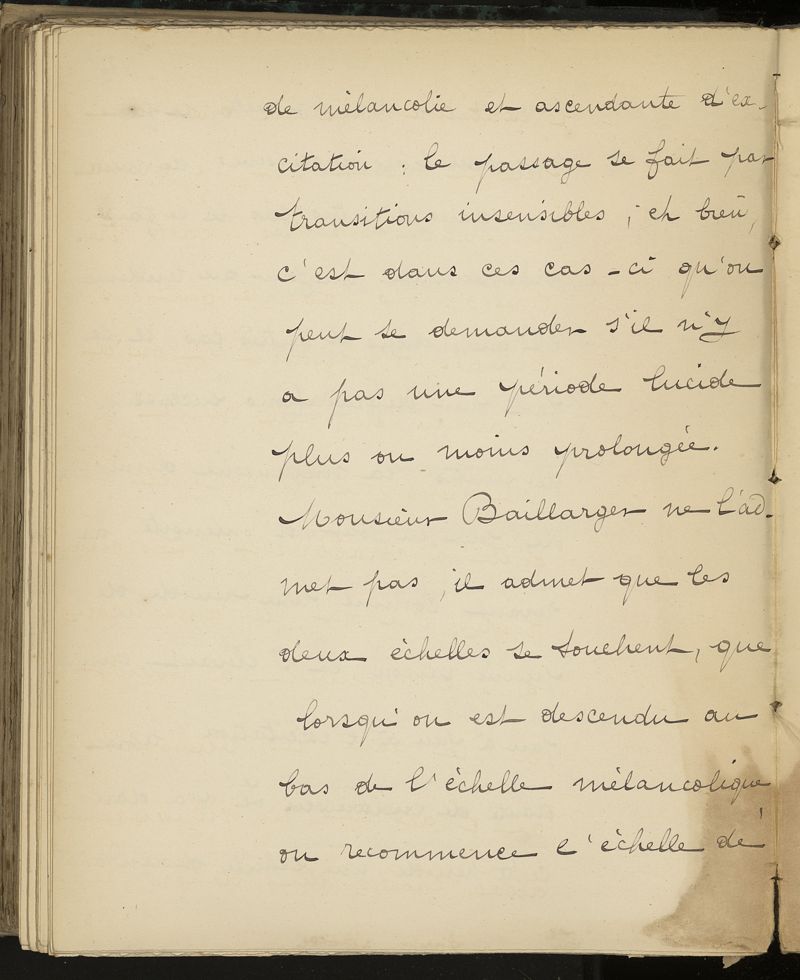 de mèlancolie et ascendante d'ex-
citation : le passage se fait par
transitions insensibles ; eh bien,
c'est dans ces cas-ci qu'on
peut se demander s'il n'y
a pas une période lucide
plus ou moins prolongée.
Monsieur Baillarger ne l'ad-
met pas, il admet que les
deux èchelles se touchent, que
lorsqu'on est descendu au
bas de l'èchelle mèlancolique
on recommence l'èchelle dé